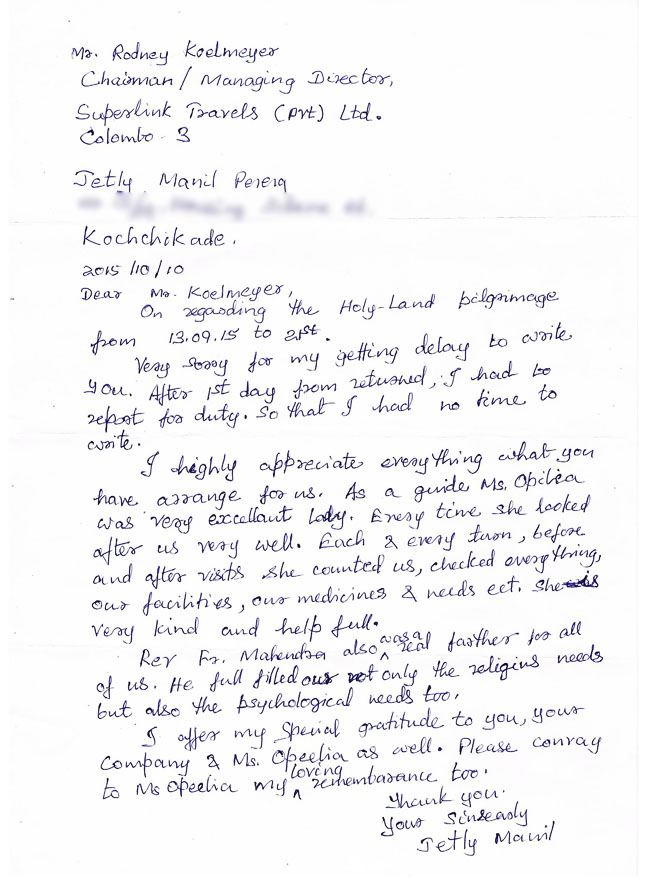 Mr. Rodney Koelmeyer
Chairman / Managing Director,
Superlink Travels (pvt) Ltd.
Colombo - 3
Jetly Manil Perera
Kochchikade.
2015/10/10
Dear Mr. Koelmeyer,
On regarding the Holy-Land pilgrimage
from 13.09.15 to 21st.
Very sorry for my getting delay to write
you. After 1st day from returned, I had to
report for duty. So that I had no time to
write.
I highly appreciate everything what you
have arrange for us. As a guide Ms. Opilia
was very excellant Lady. Every time she looked
after us very well. Each & every turn, before
and after visits she counted us, checked everything,
our facilities, our medicines & needs ect. She is
very kind and help full.
Rev Fr. Mahendra also was a real farther for all
of us. He full filled our not only the religius needs
but also the psychological needs too.
I offer my special gratitude to you, your
Company & Ms. Opeelia as well. Please convay
to Ms Opeelia my loving remembarance too.
Thank you.
Your Sinseady
Jetly Manil